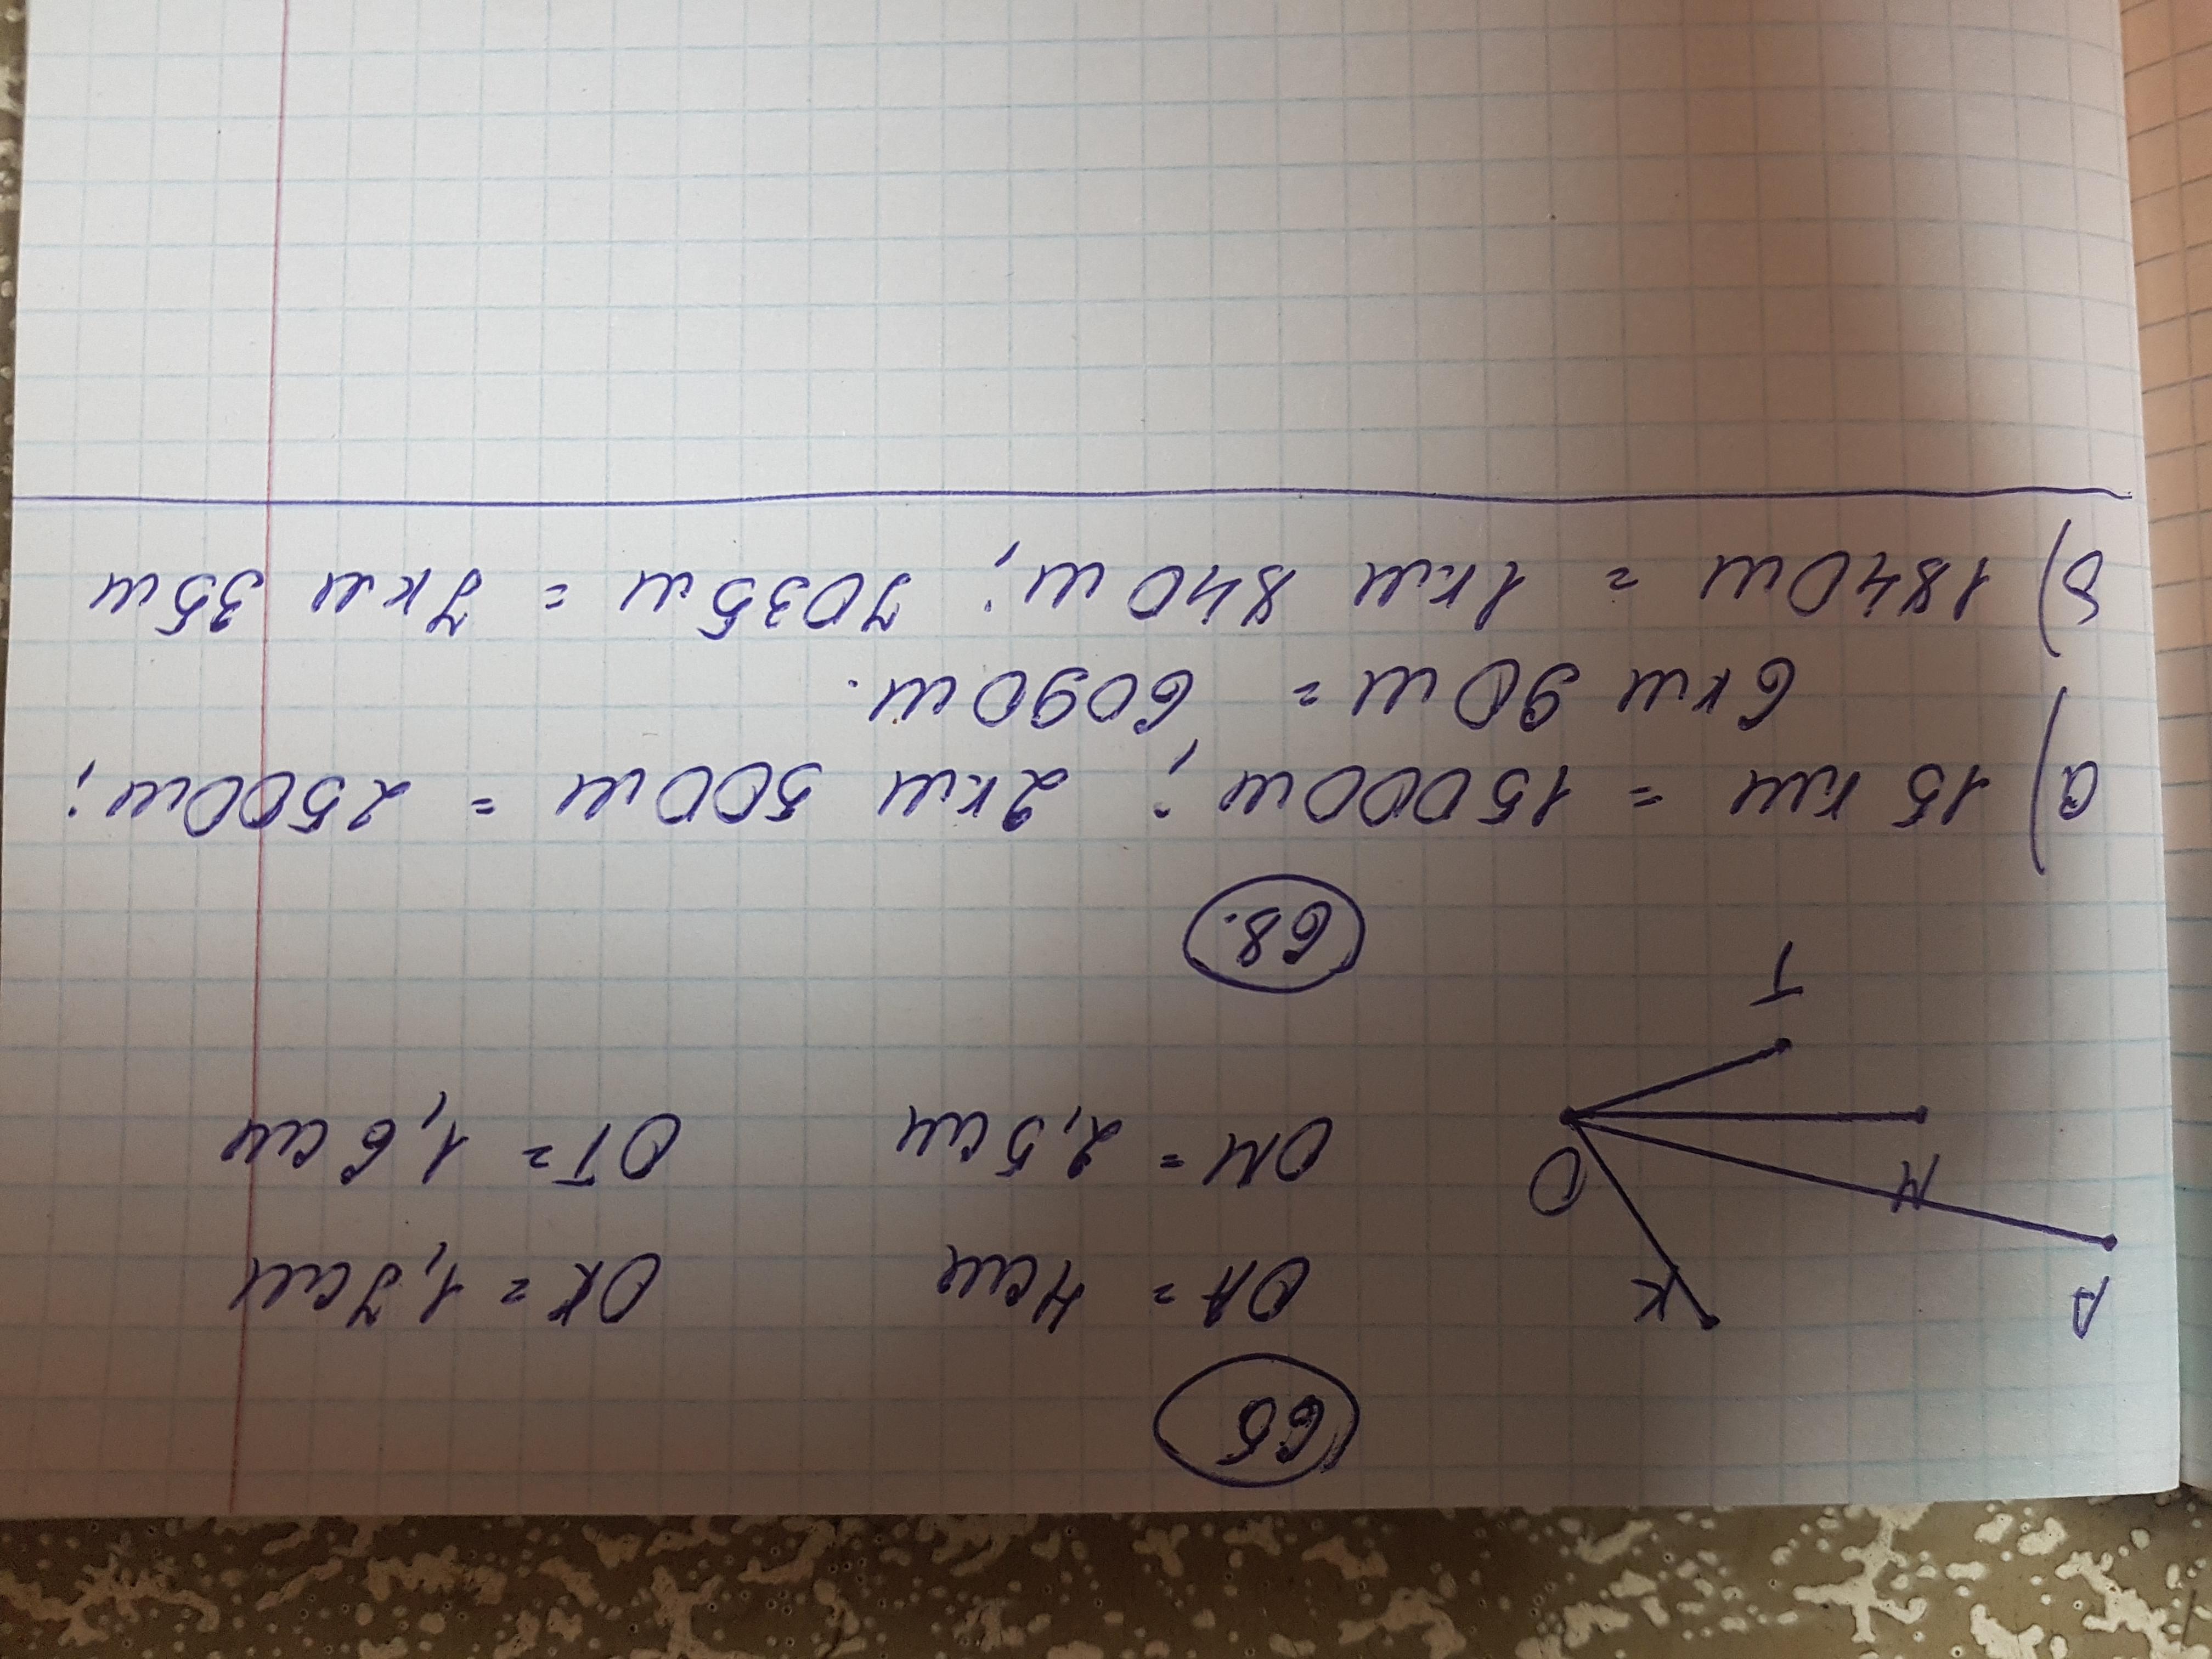 65
A
K
OA = 4см OK = 1,7см
M
O
OM = 2,5см OT = 1,6см
T
68.
а) 15 км = 15000м; 2км 500м = 2500м;
6км 90м = 6090м.
б) 1840м = 1км 840м; 7035м = 7км 35м